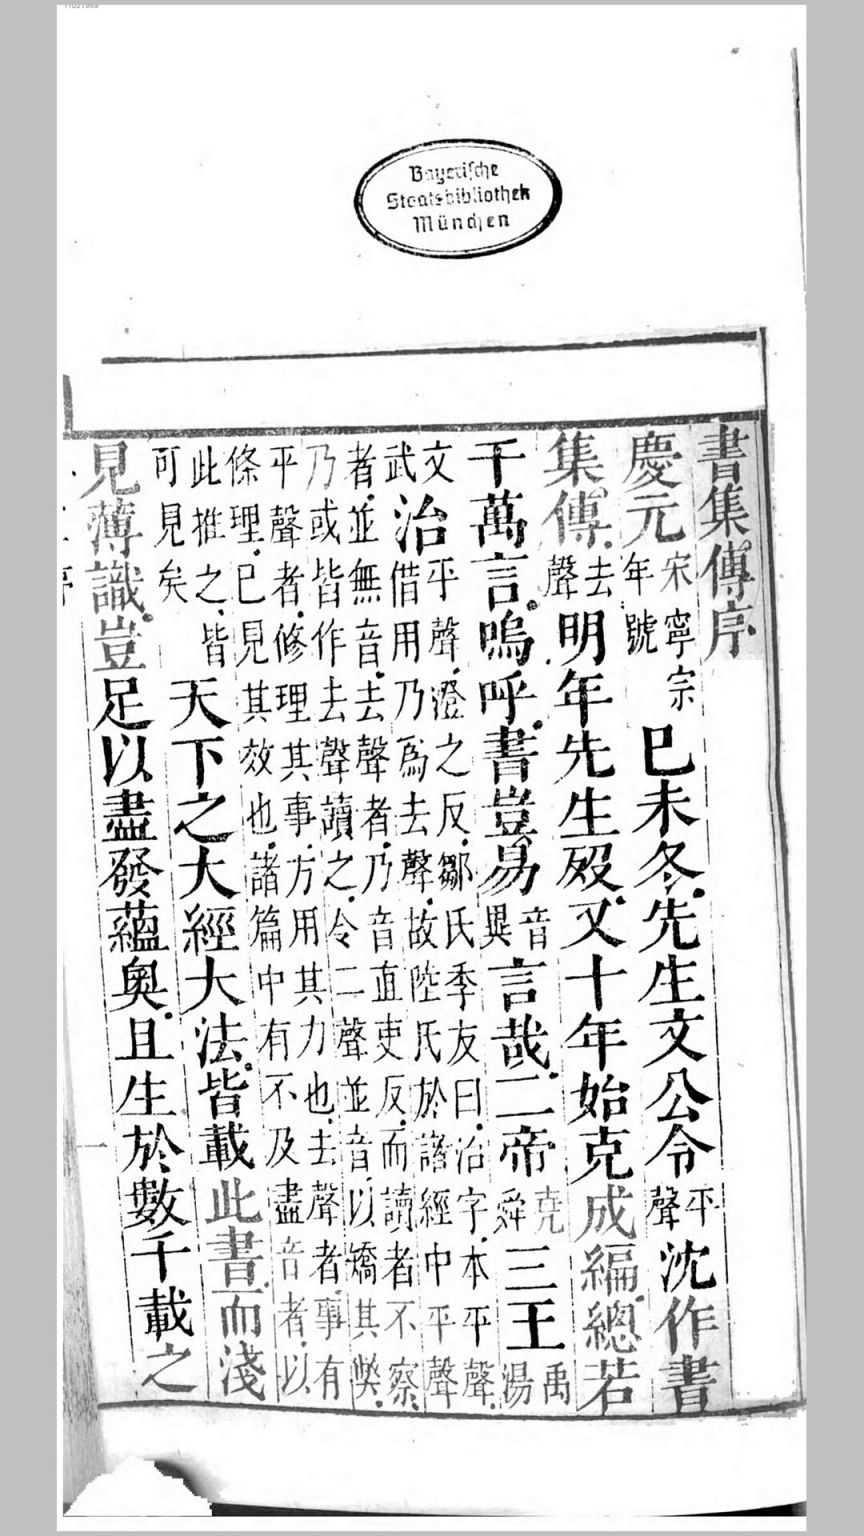 Bayerische
Staatsbibliothek
München
書集傳序
慶元宋寧宗年號巳未冬先生文公令平聲沈作書
集傳去聲明年先生歿又十年始克成編總若
千萬言嗚呼書豈易音異言哉二帝堯舜三王禹湯
文武治平聲澄之反鄒氏季友曰治字本平聲借用乃爲去聲故陸氏於諸經中平聲
者並無音去聲者乃音直吏反而讀者不察乃或皆作去聲讀之令二聲並音以矯其弊
平聲者修理其事方用其力也去聲者事有條理已見其效也諸篇中有不及盡音者以
此推之皆可見矣天下之大經大法皆載此書而淺
見薄識豈足以盡發蘊奧且生於數千載之